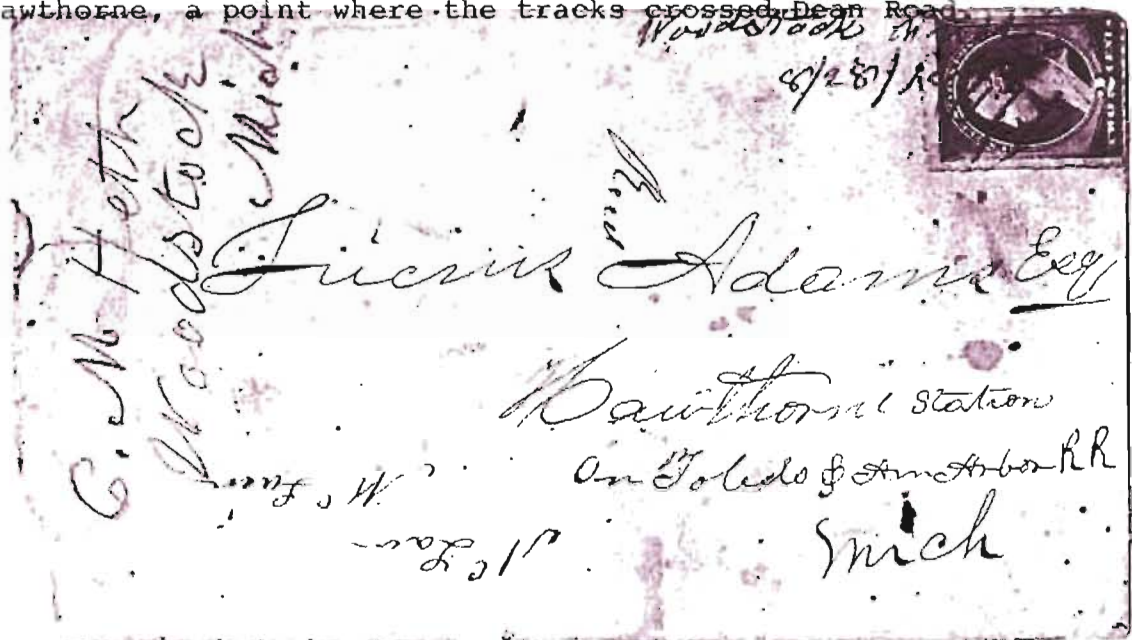 awthorne, a point where the tracks crossed Dean Road.
Woodstock
8/28/
C. M. Heth
Woodstock
Mich
Adams Esq
Hawthorne Station
On Toledo & Ann Arbor RR
Mich